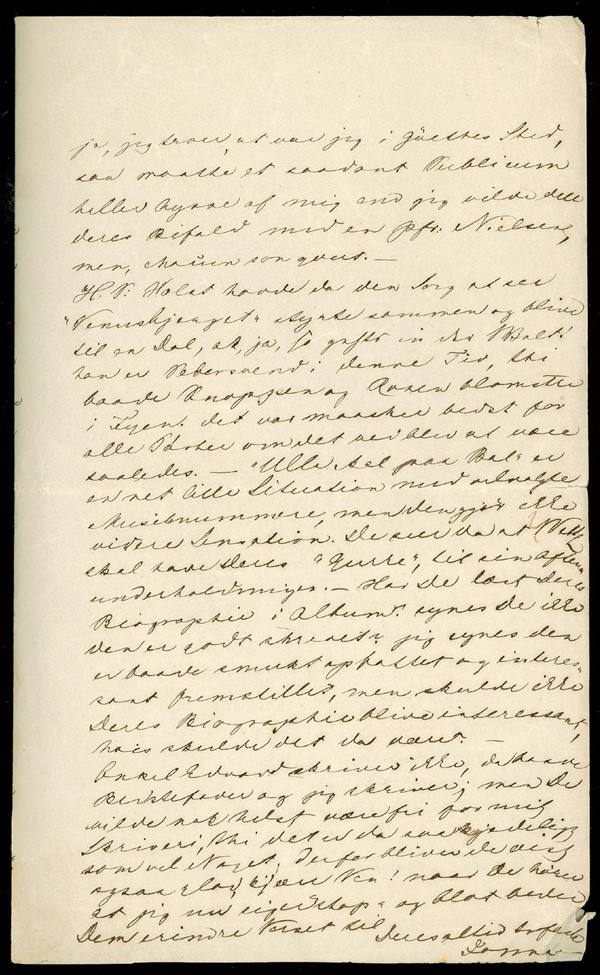 ja, jeg troer, at var jeg i Göethes Sted,
saa maatte et saadant Publicum
heller hynne af mig end jeg vilde dele
deres Bifald med en pfr: Nielsen,
men, chacun son gout. —
H: P: Holst havde da den Sorg at see
"Venusbjerget" styrte sammen og blive
til en Dal, ak, ja, so gehts in der Welt!
han er Pebersvend i denne Tid, thi
baade Knoppen og Rosen blomstre
i Fyen! det var maaskee bedst for
alle Parter om det ved blev at være
saaledes. — "Ulla skal paa Bal" er
en net lille Situation med udvalgte
Musiknummere, men den gjør ikke
videre Sensation. De seer da at
skal have Deres "Gurre", til sin Aften
underholdningen. — Har De læst Deres
Biographie i Album? synes De ikke
den er godt skrevet? jeg synes den
er baade smukt opfattet og interes-
sant fremstillet, men skulde ikke
Deres Biographie blive interessant,
hvis skulde det da være? —
Onkel Edvard skriver ikke, da baade
Bedstefader og jeg skriver; men De
vilde nok helst være fri for mit
Skriveri, thi det er da saa kjedeligt
som vel Noget, derfor bliver De vist
ogsaa glad, kjære Ven! naar De hører
at jeg nu siger "stop" og blot beder
Dem erindre Verset til
Deres altid trofaste
Jonna —